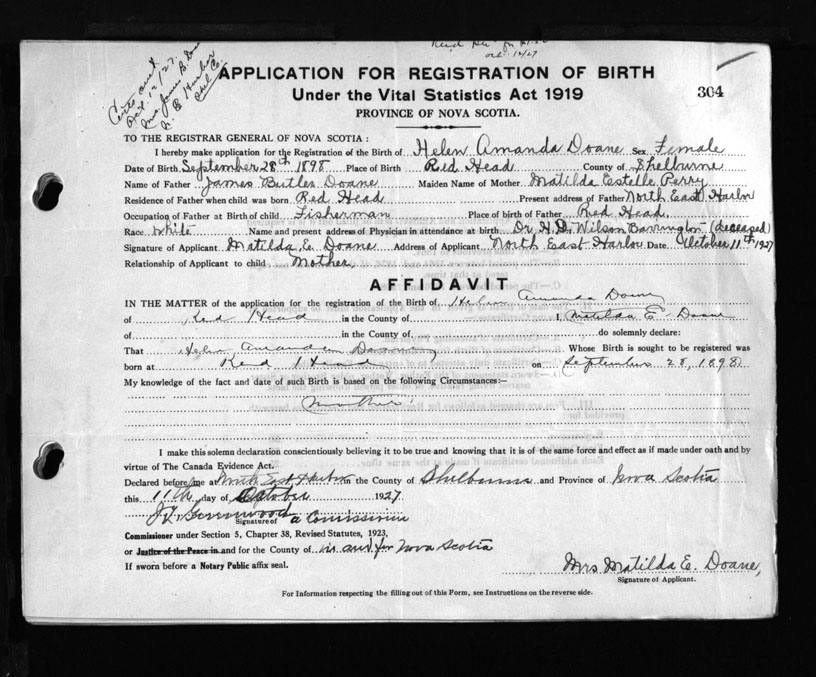 Oct 12/27
304
APPLICATION FOR REGISTRATION OF BIRTH
Under the Vital Statistics Act 1919
PROVINCE OF NOVA SCOTIA.
TO THE REGISTRAR GENERAL OF NOVA SCOTIA :
I hereby make application for the Registration of the Birth of Helen Amanda Doane Sex Female
Date of Birth September 28th 1898 Place of Birth Red Head County of Shelburne
Name of Father James Butler Doane Maiden Name of Mother Matilda Estelle Perry
Residence of Father when child was born Red Head Present address of Father North East Harbor
Occupation of Father at Birth of child Fisherman Place of birth of Father Red Head
Race White Name and present address of Physician in attendance at birth Dr. H. D. Wilson Barrington (deceased)
Signature of Applicant Matilda E. Doane Address of Applicant North East Harbor Date October 11th 1927
Relationship of Applicant to child Mother
AFFIDAVIT
IN THE MATTER of the application for the registration of the Birth of Helen Amanda
of Red Head in the County of I, Matilda E. Doane
of in the County of do solemnly declare:
That Helen Amanda Whose Birth is sought to be registered was
born at Red Head on September 28, 1898
My knowledge of the fact and date of such Birth is based on the following Circumstances:—
Mother
I make this solemn declaration conscientiously believing it to be true and knowing that it is of the same force and effect as if made under oath and by
virtue of The Canada Evidence Act.
Declared before me at North East Harbor in the County of Shelburne and Province of Nova Scotia
this 11th day of October 1927
Signature of a Comissioner
Commissioner under Section 5, Chapter 38, Revised Statutes, 1923,
or Justice of the Peace in and for the County of in and for Nova Scotia
If sworn before a Notary Public affix seal.
Mrs Matilda E. Doane,
Signature of Applicant.
For Information respecting the filling out of this Form, see Instructions on the reverse side.